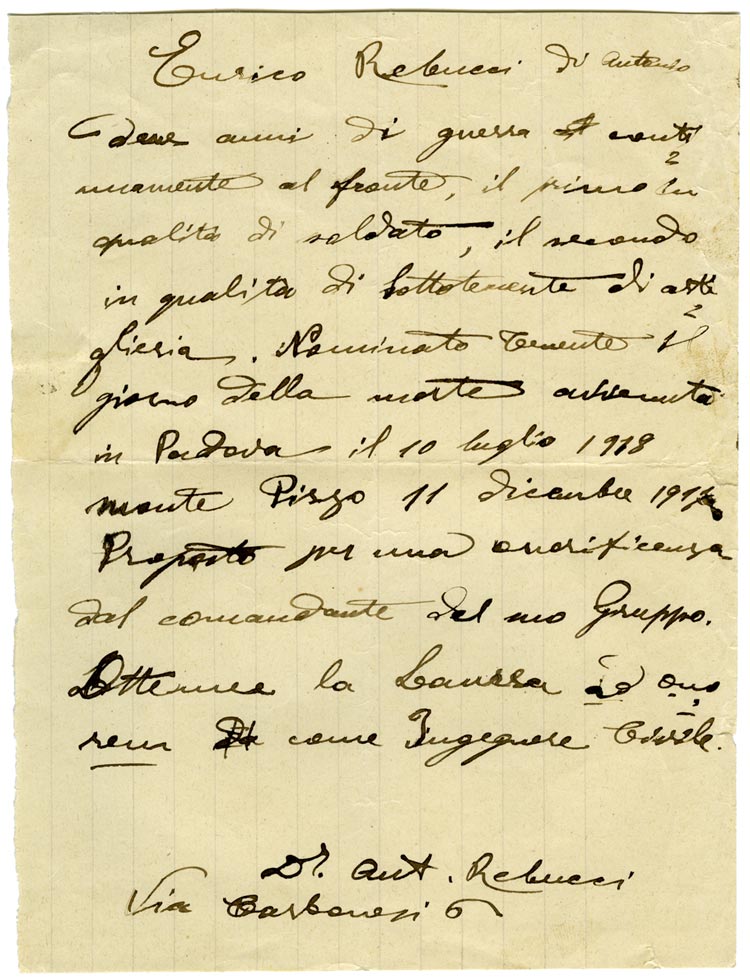 Enrico Rebucci di Antonio
due anni di guerra conti
nuamente al fronte, il primo in
qualità di soldato, il secondo
in qualità di Sottotenente di arti
glieria. Nominato Tenente il
giorno della morte avvenuta
in Padova il 10 luglio 1918
monte Pizzo 11 dicembre 1917
Proposto per una onorificenza
dal comandante del suo Gruppo.
Ottenne la Laurea ad ono
rem come Ingegnere Civile.
Dr. Ant. Rebucci
Via Carbonesi 6